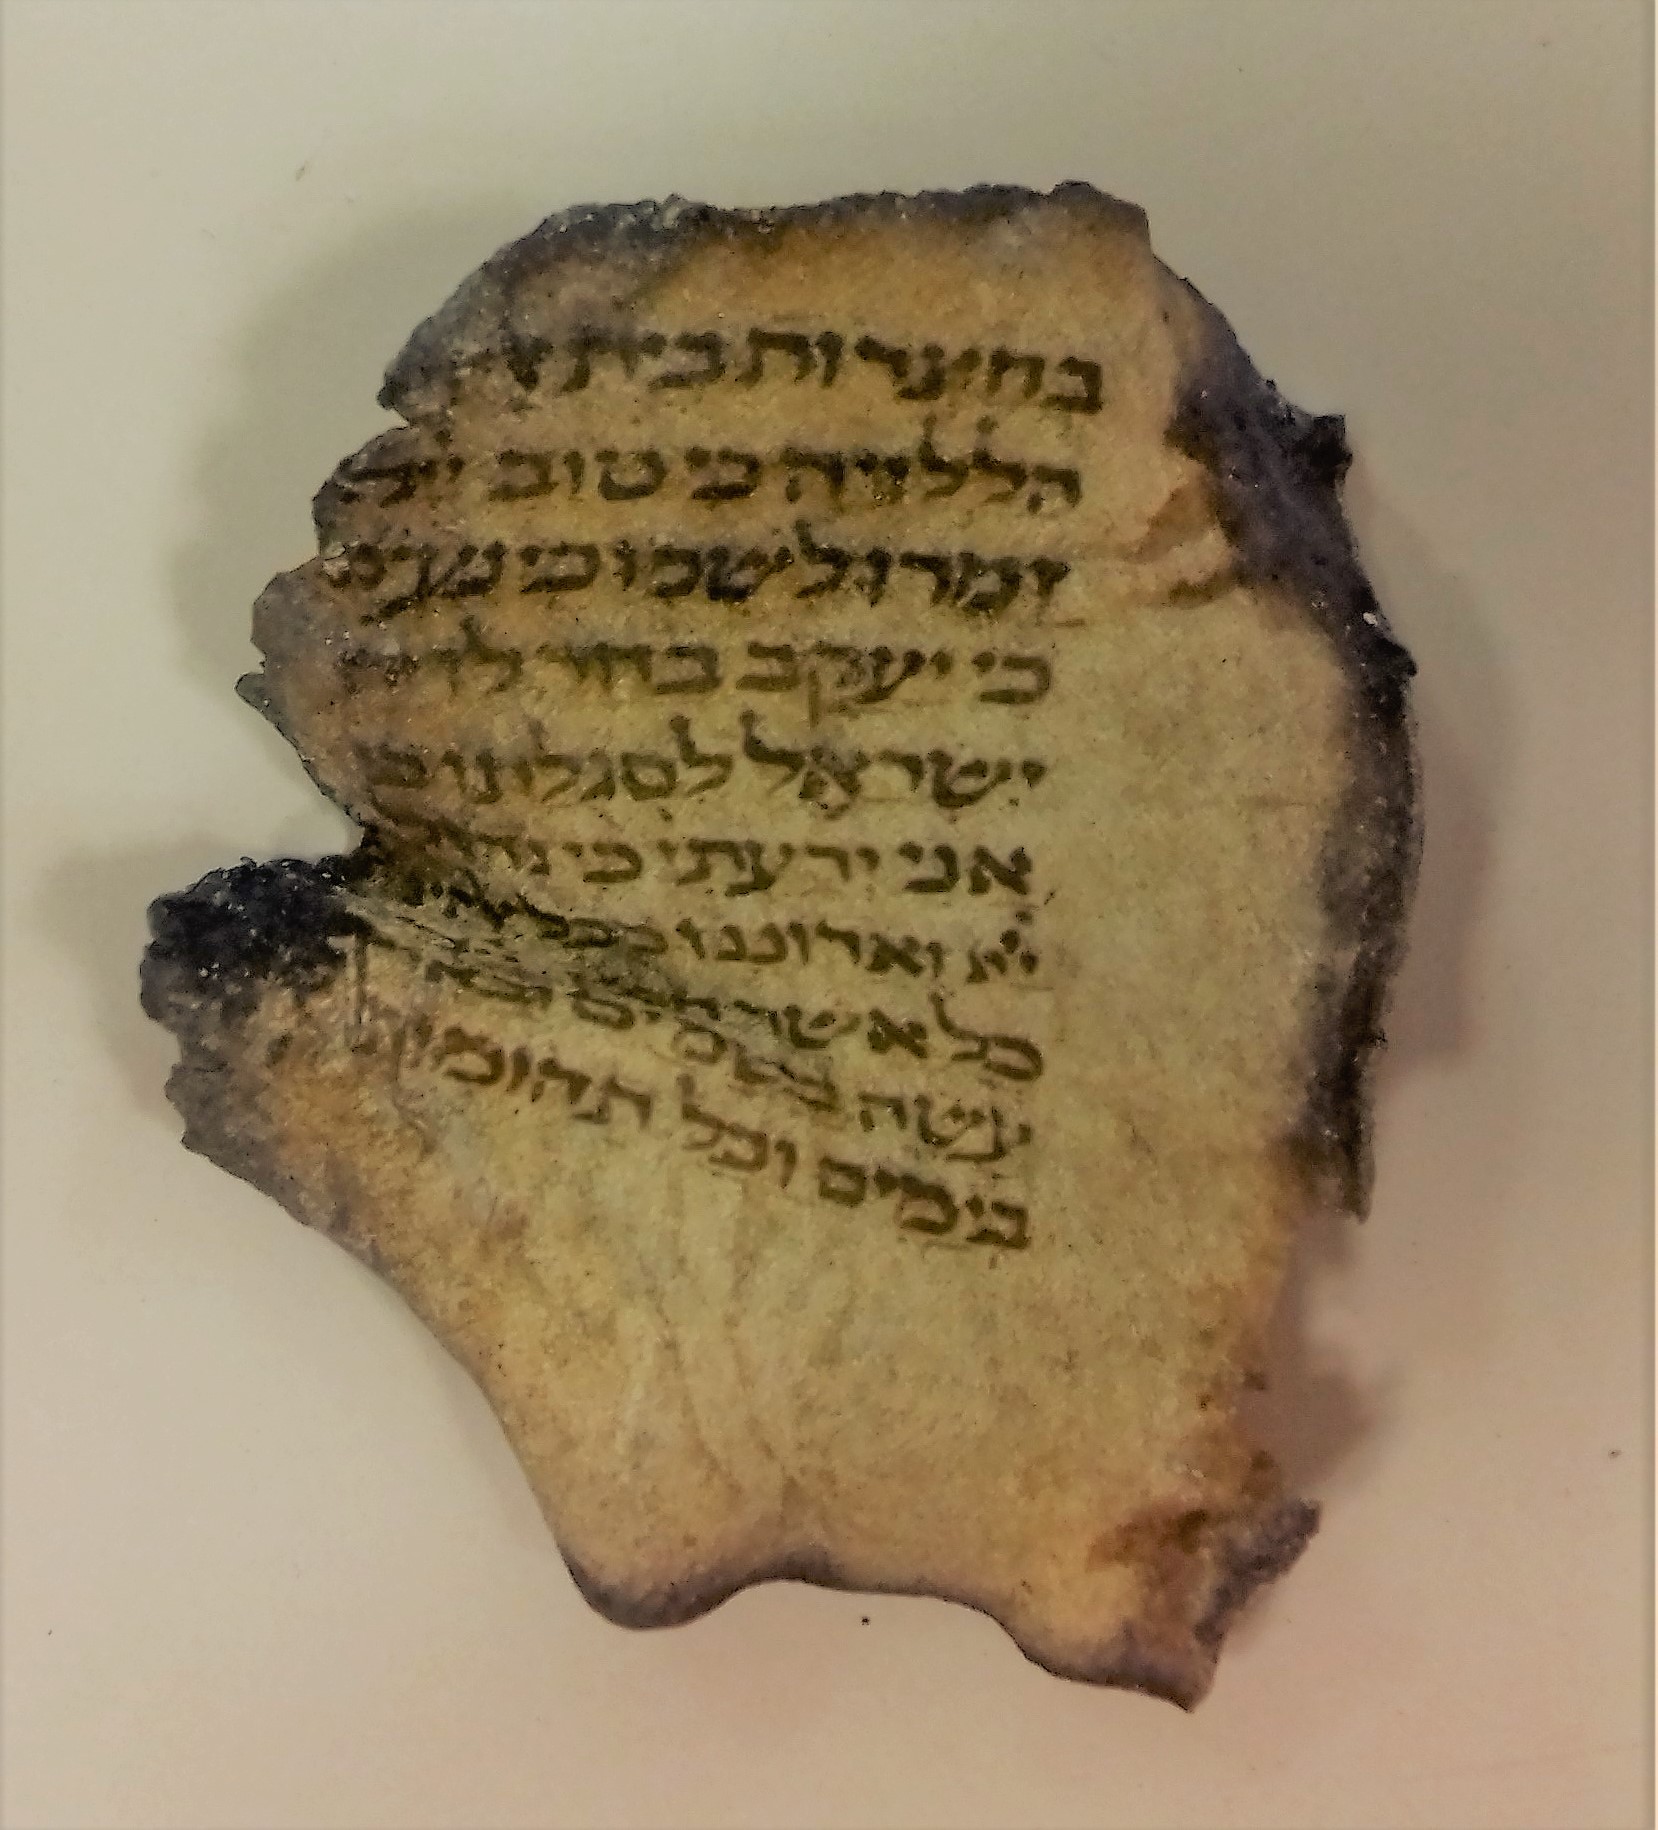 בחצרות בית
הללויה כי טוב יי
זמרו לשמו כי נעים
כי יעקב בחר לו
ישראל לסגלתו כי
אני ידעתי כי גדול
יי ואדוננו מכל
כל אשר
עשה בשמים
בימים וכל תהומות